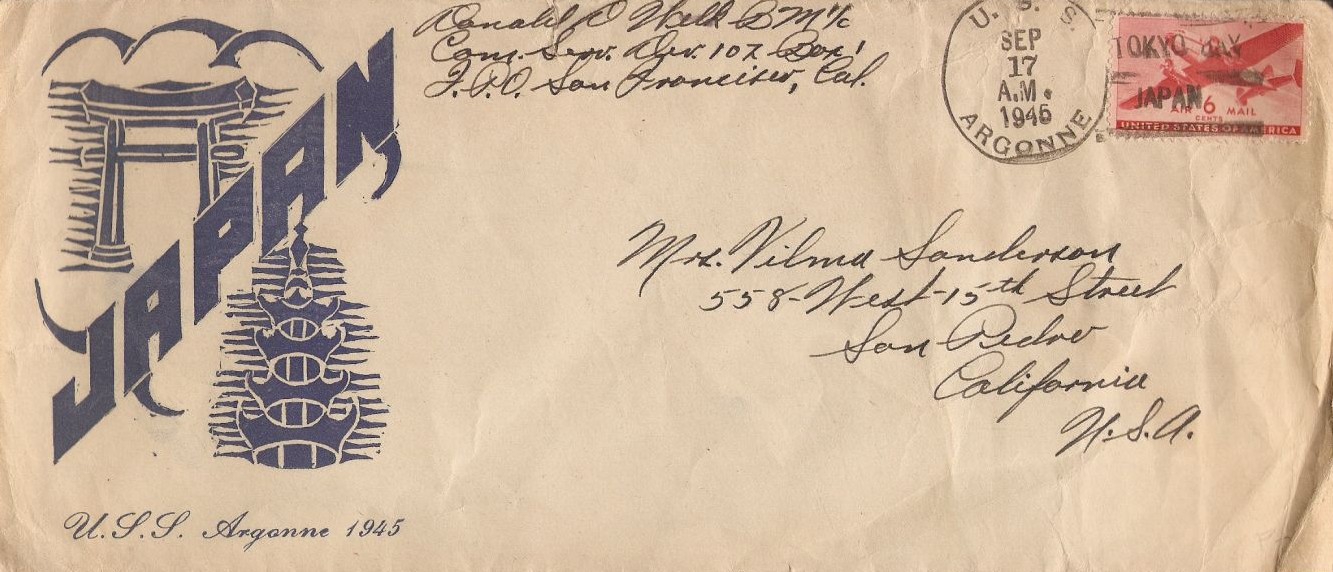 Donald D Walk BM 1/c
Com. Serv. Div. 102 Box 1
F.P.O. San Francisco, Cal.
U. S. S.
SEP
17
A.M.
1945
ARGONNE
TOKYO BAY
JAPAN
AIR 6 MAIL
CENTS
UNITED STATES OF AMERICA
JAPAN
Mrs. Vilma Sanderson
558-West-15th Street
San Pedro
California
U.S.A.
U.S.S. Argonne 1945